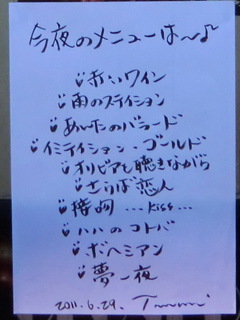 今夜のメニューは〜♪
♥赤いワイン
♥雨のステイション
♥あしたのバラード
♥イミテイション・ゴールド
♥オリビアを聴きながら
♥さらば恋人
♥接吻 ...kiss...
♥ハハのコトバ
♥ボヘミアン
♥夢一夜
2011.6.29.